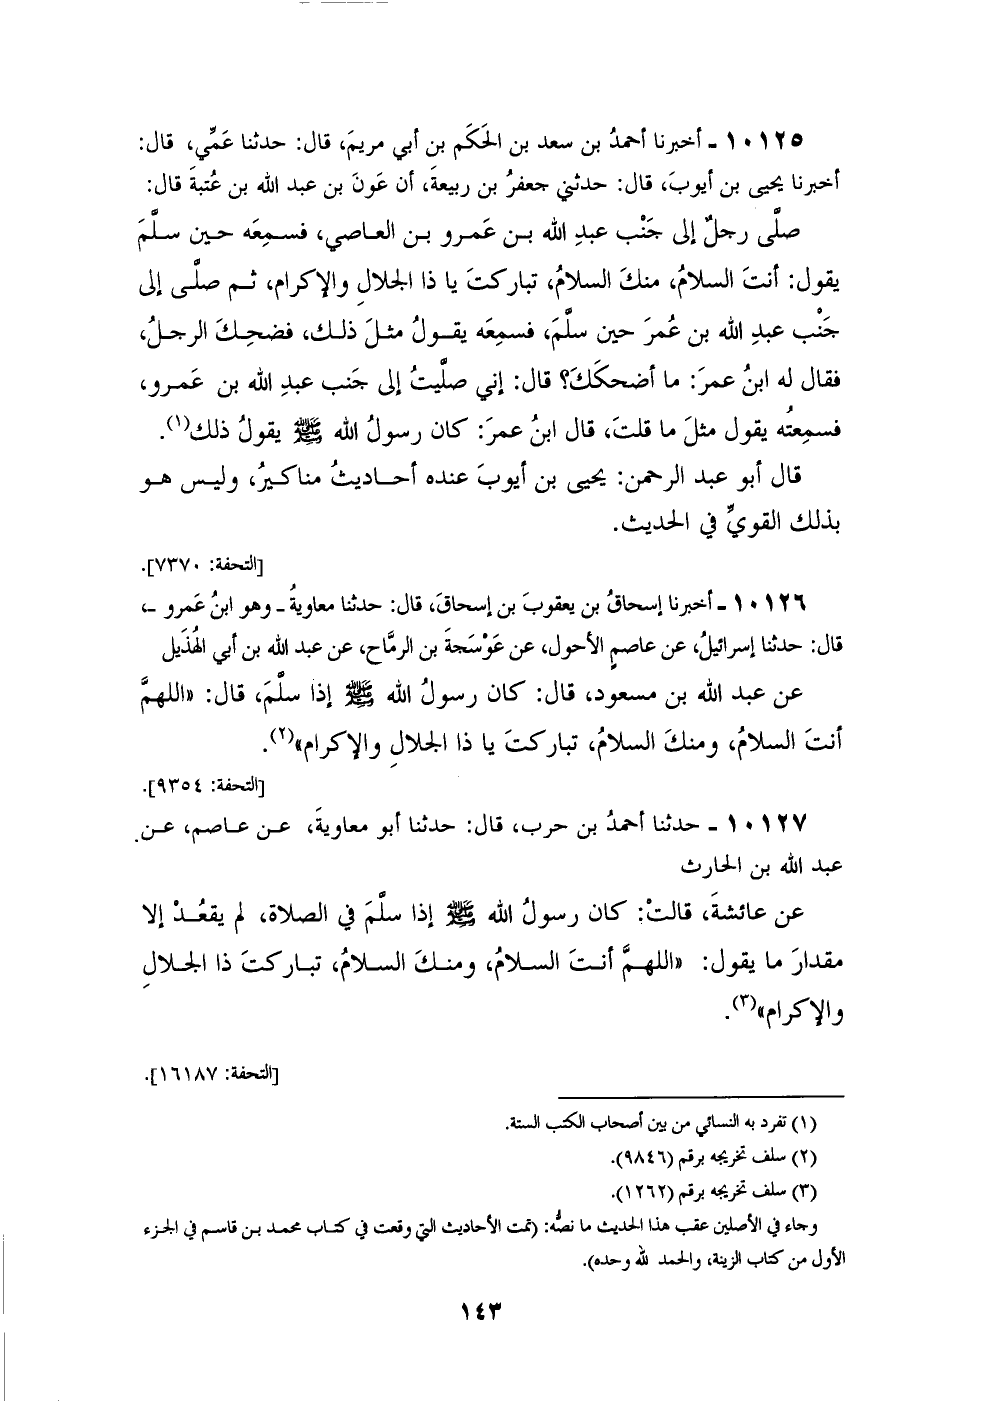 ١٠١٢٥ - أخبرنا أحمدُ بن سعد بن الحَكَم بن أبي مريمَ، قال: حدثنا عَمِّي، قال:
أخبرنا يحيى بن أيوبَ، قال: حدثني جعفرُ بن ربيعةَ، أن عَونَ بن عبد الله بن عُتبةَ قال:
صلَّى رجلٌ إلى جَنْب عبدِ الله بن عَمرو بن العاصي، فسمِعَه حين سلَّمَ
يقول: أنتَ السلامُ، منكَ السلامُ، تباركتَ يا ذا الجلالِ والإكرام، ثم صلَّى إلى
جَنْب عبدِ الله بن عُمرَ حين سلَّمَ، فسمِعَه يقولُ مثلَ ذلك، فضحِكَ الرجلُ،
فقال له ابنُ عمرَ: ما أضحكَكَ؟ قال: إني صلَّيتُ إلى جَنب عبدِ الله بن عَمرو،
فسمِعتُه يقول مثلَ ما قلتَ، قال ابنُ عمرَ: كان رسولُ الله ﷺ يقولُ ذلك(١).
قال أبو عبد الرحمن: يحيى بن أيوبَ عنده أحاديثُ مناكيرُ، وليس هو
بذلك القويِّ في الحديث.
[التحفة: ٧٣٧٠].
١٠١٢٦ - أخبرنا إسحاقُ بن يعقوبَ بن إسحاقَ، قال: حدثنا معاويةُ - وهو ابنُ عَمرو -،
قال: حدثنا إسرائيلُ، عن عاصمٍ الأحول، عن عَوْسَجةَ بن الرمَّاح، عن عبد الله بن أبي الهُذَيل
عن عبد الله بن مسعود، قال: كان رسولُ الله ﷺ إذا سلَّمَ، قال: «اللهمَّ
أنتَ السلامُ، ومنكَ السلامُ، تباركتَ يا ذا الجلالِ والإكرام»(٢).
[التحفة: ٩٣٥٤].
١٠١٢٧ - حدثنا أحمدُ بن حرب، قال: حدثنا أبو معاويةَ، عن عاصم، عن
عبد الله بن الحارث
عن عائشةَ، قالتْ: كان رسولُ الله ﷺ إذا سلَّمَ في الصلاة، لم يقعُدْ إلا
مقدارَ ما يقول: «اللهمَّ أنتَ السلامُ، ومنكَ السلامُ، تباركتَ ذا الجلالِ
والإكرام»(٣).
[التحفة: ١٦١٨٧].
(١) تفرد به النسائي من بين أصحاب الكتب الستة.
(٢) سلف تخريجه برقم (٩٨٤٦).
(٣) سلف تخريجه برقم (١٢٦٢).
وجاء في الأصلين عقب هذا الحديث ما نصُّه: (تمت الأحاديث التي وقعت في كتاب محمد بن قاسم في الجزء
الأول من كتاب الزينة، والحمد لله وحده).
١٤٣